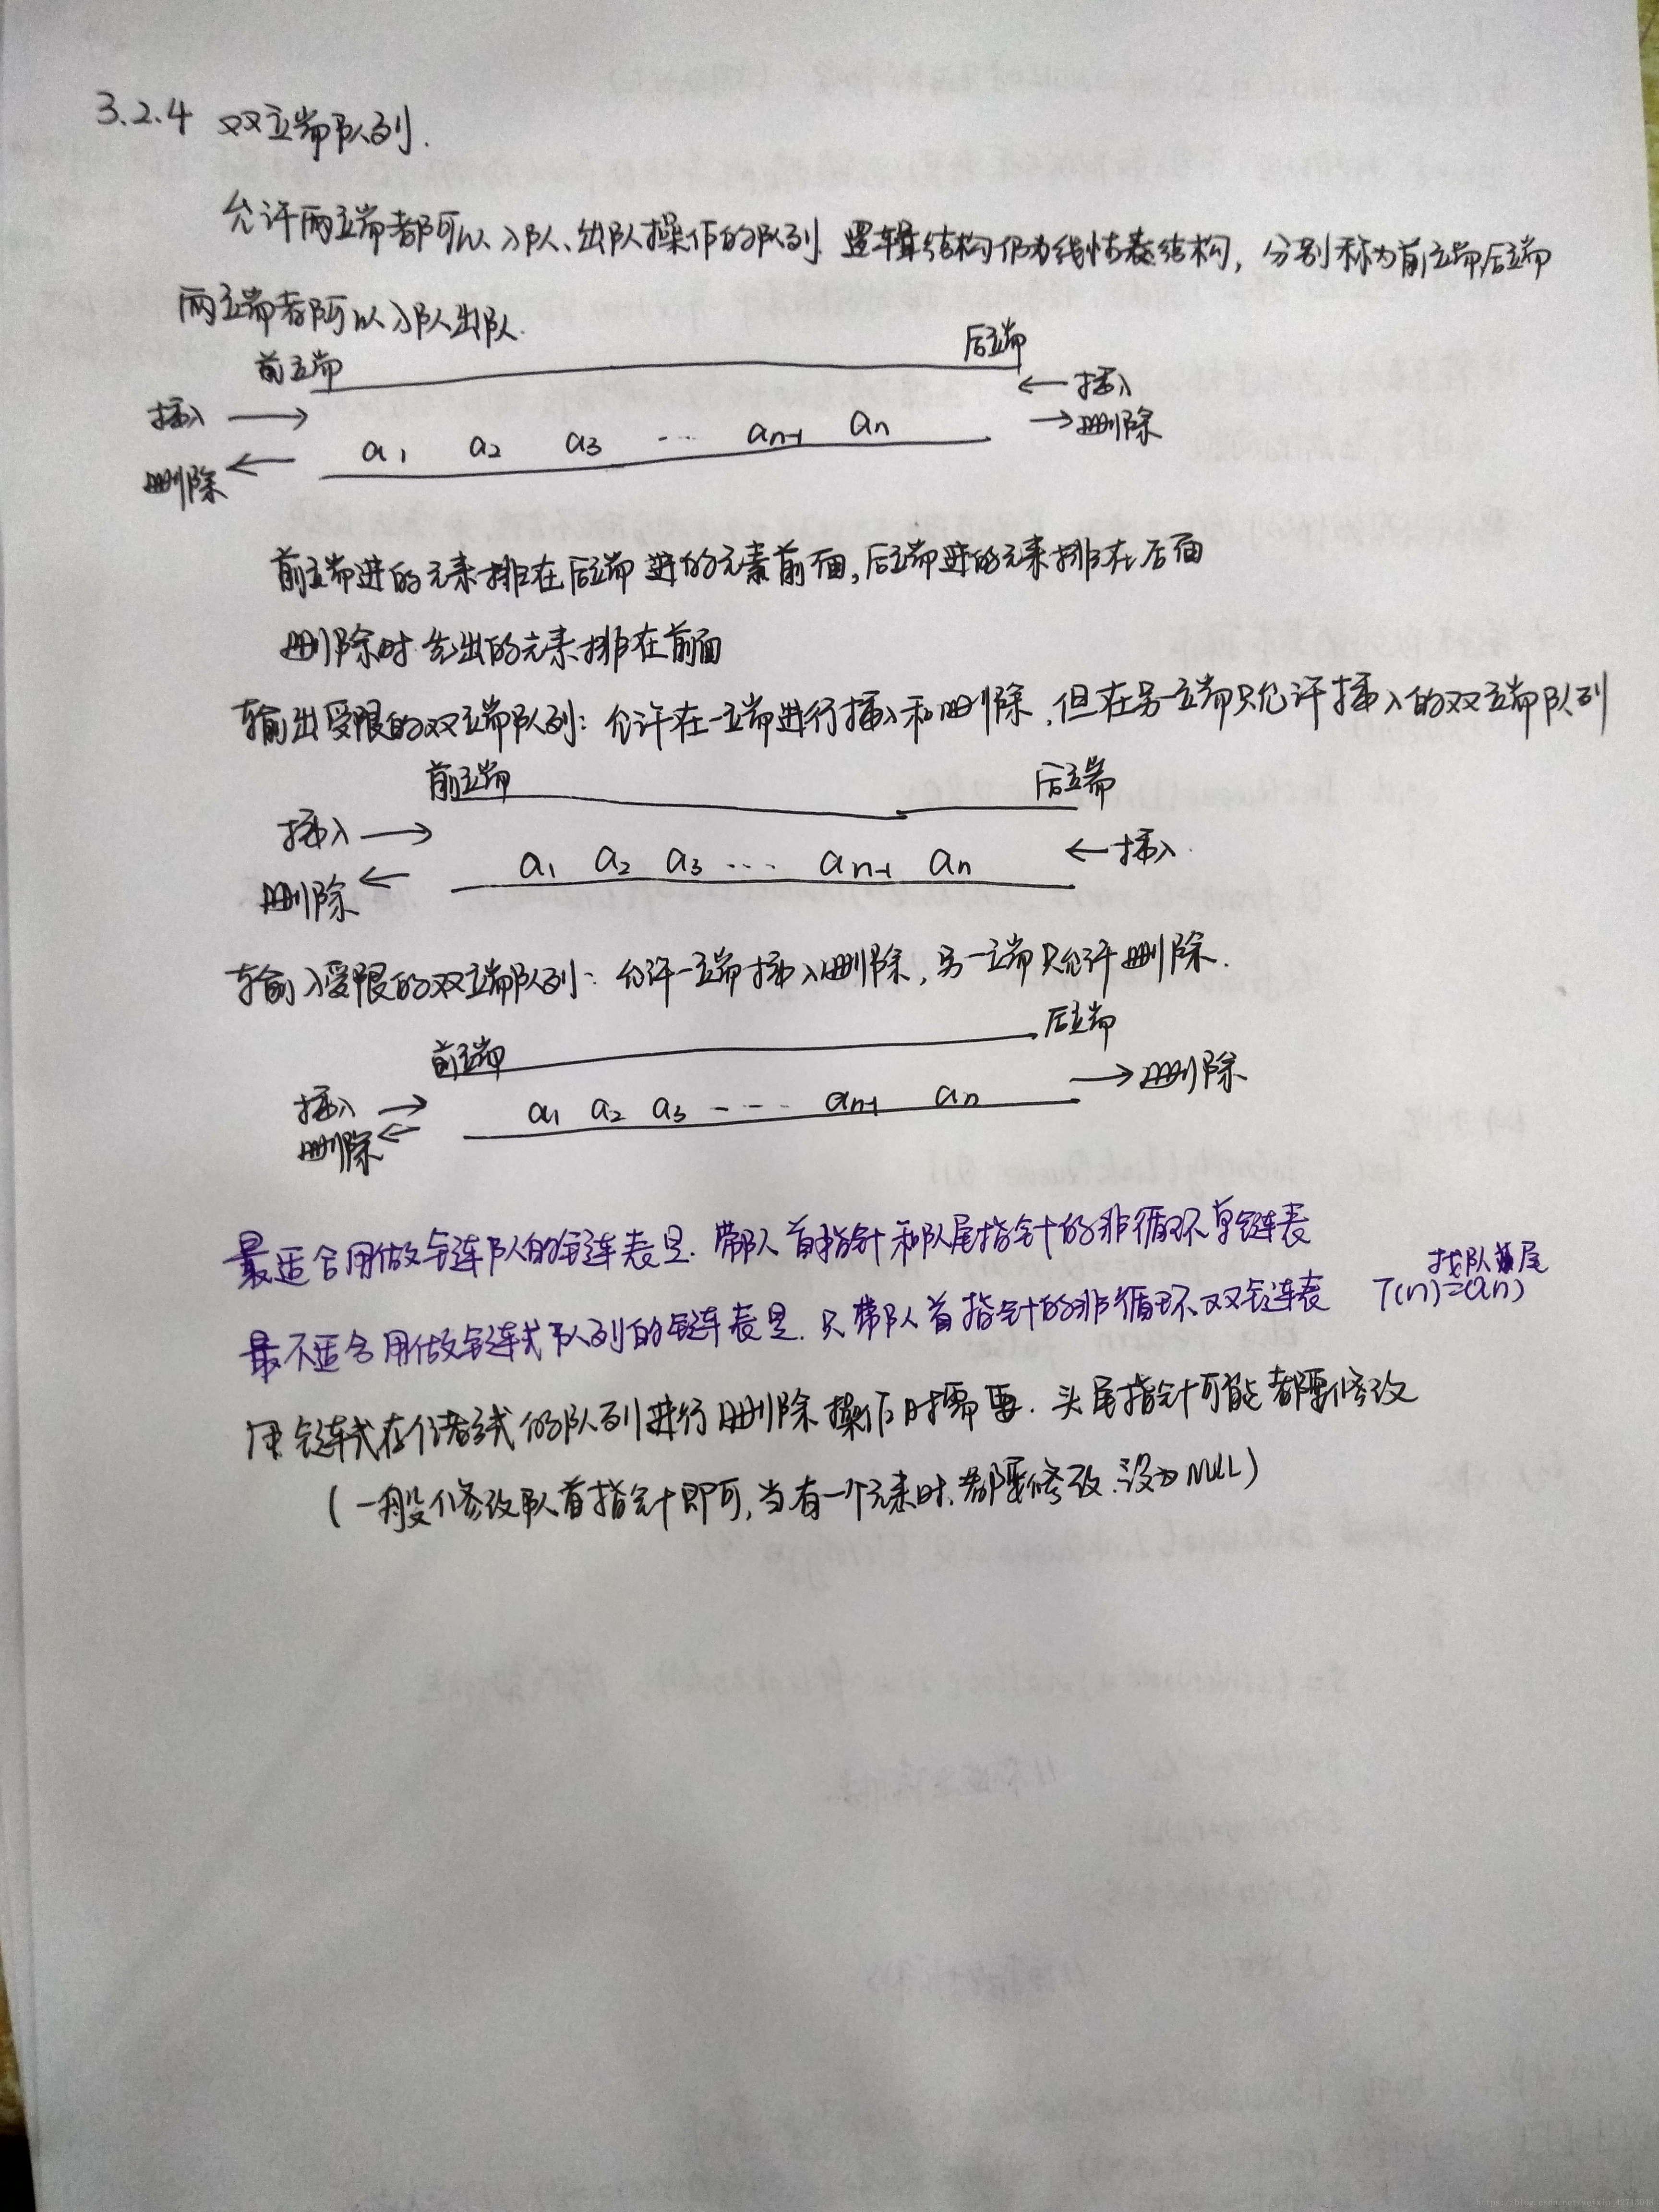 3.2.4 双端队列.
允许两端都可以入队、出队操作的队列. 逻辑结构仍为线性表结构, 分别称为前端后端
两端都可以入队出队.
前端 后端
插入 → ← 插入
删除 ← a1 a2 a3 ... an-1 an → 删除
前端进的元素排在后端进的元素前面, 后端进的元素排在后面
删除时 先出的元素排在前面
输出受限的双端队列: 允许在一端进行插入和删除, 但在另一端只允许插入的双端队列
前端 后端
插入 → ← 插入.
删除 ← a1 a2 a3 ... an-1 an
输入受限的双端队列: 允许一端插入删除, 另一端只允许删除.
前端 后端
插入 → → 删除
删除 ← a1 a2 a3 --- an-1 an
最适合用做链队的链表是. 带队首指针和队尾指针的非循环单链表
找队尾
最不适合用做链式队列的链表是. 只带队首指针的非循环双链表 T(n)=O(n)
用链式存储式的队列进行删除操作时需要. 头尾指针可能都要修改
(一般修改队首指针即可, 当有一个元素时. 都要修改. 设为NULL)